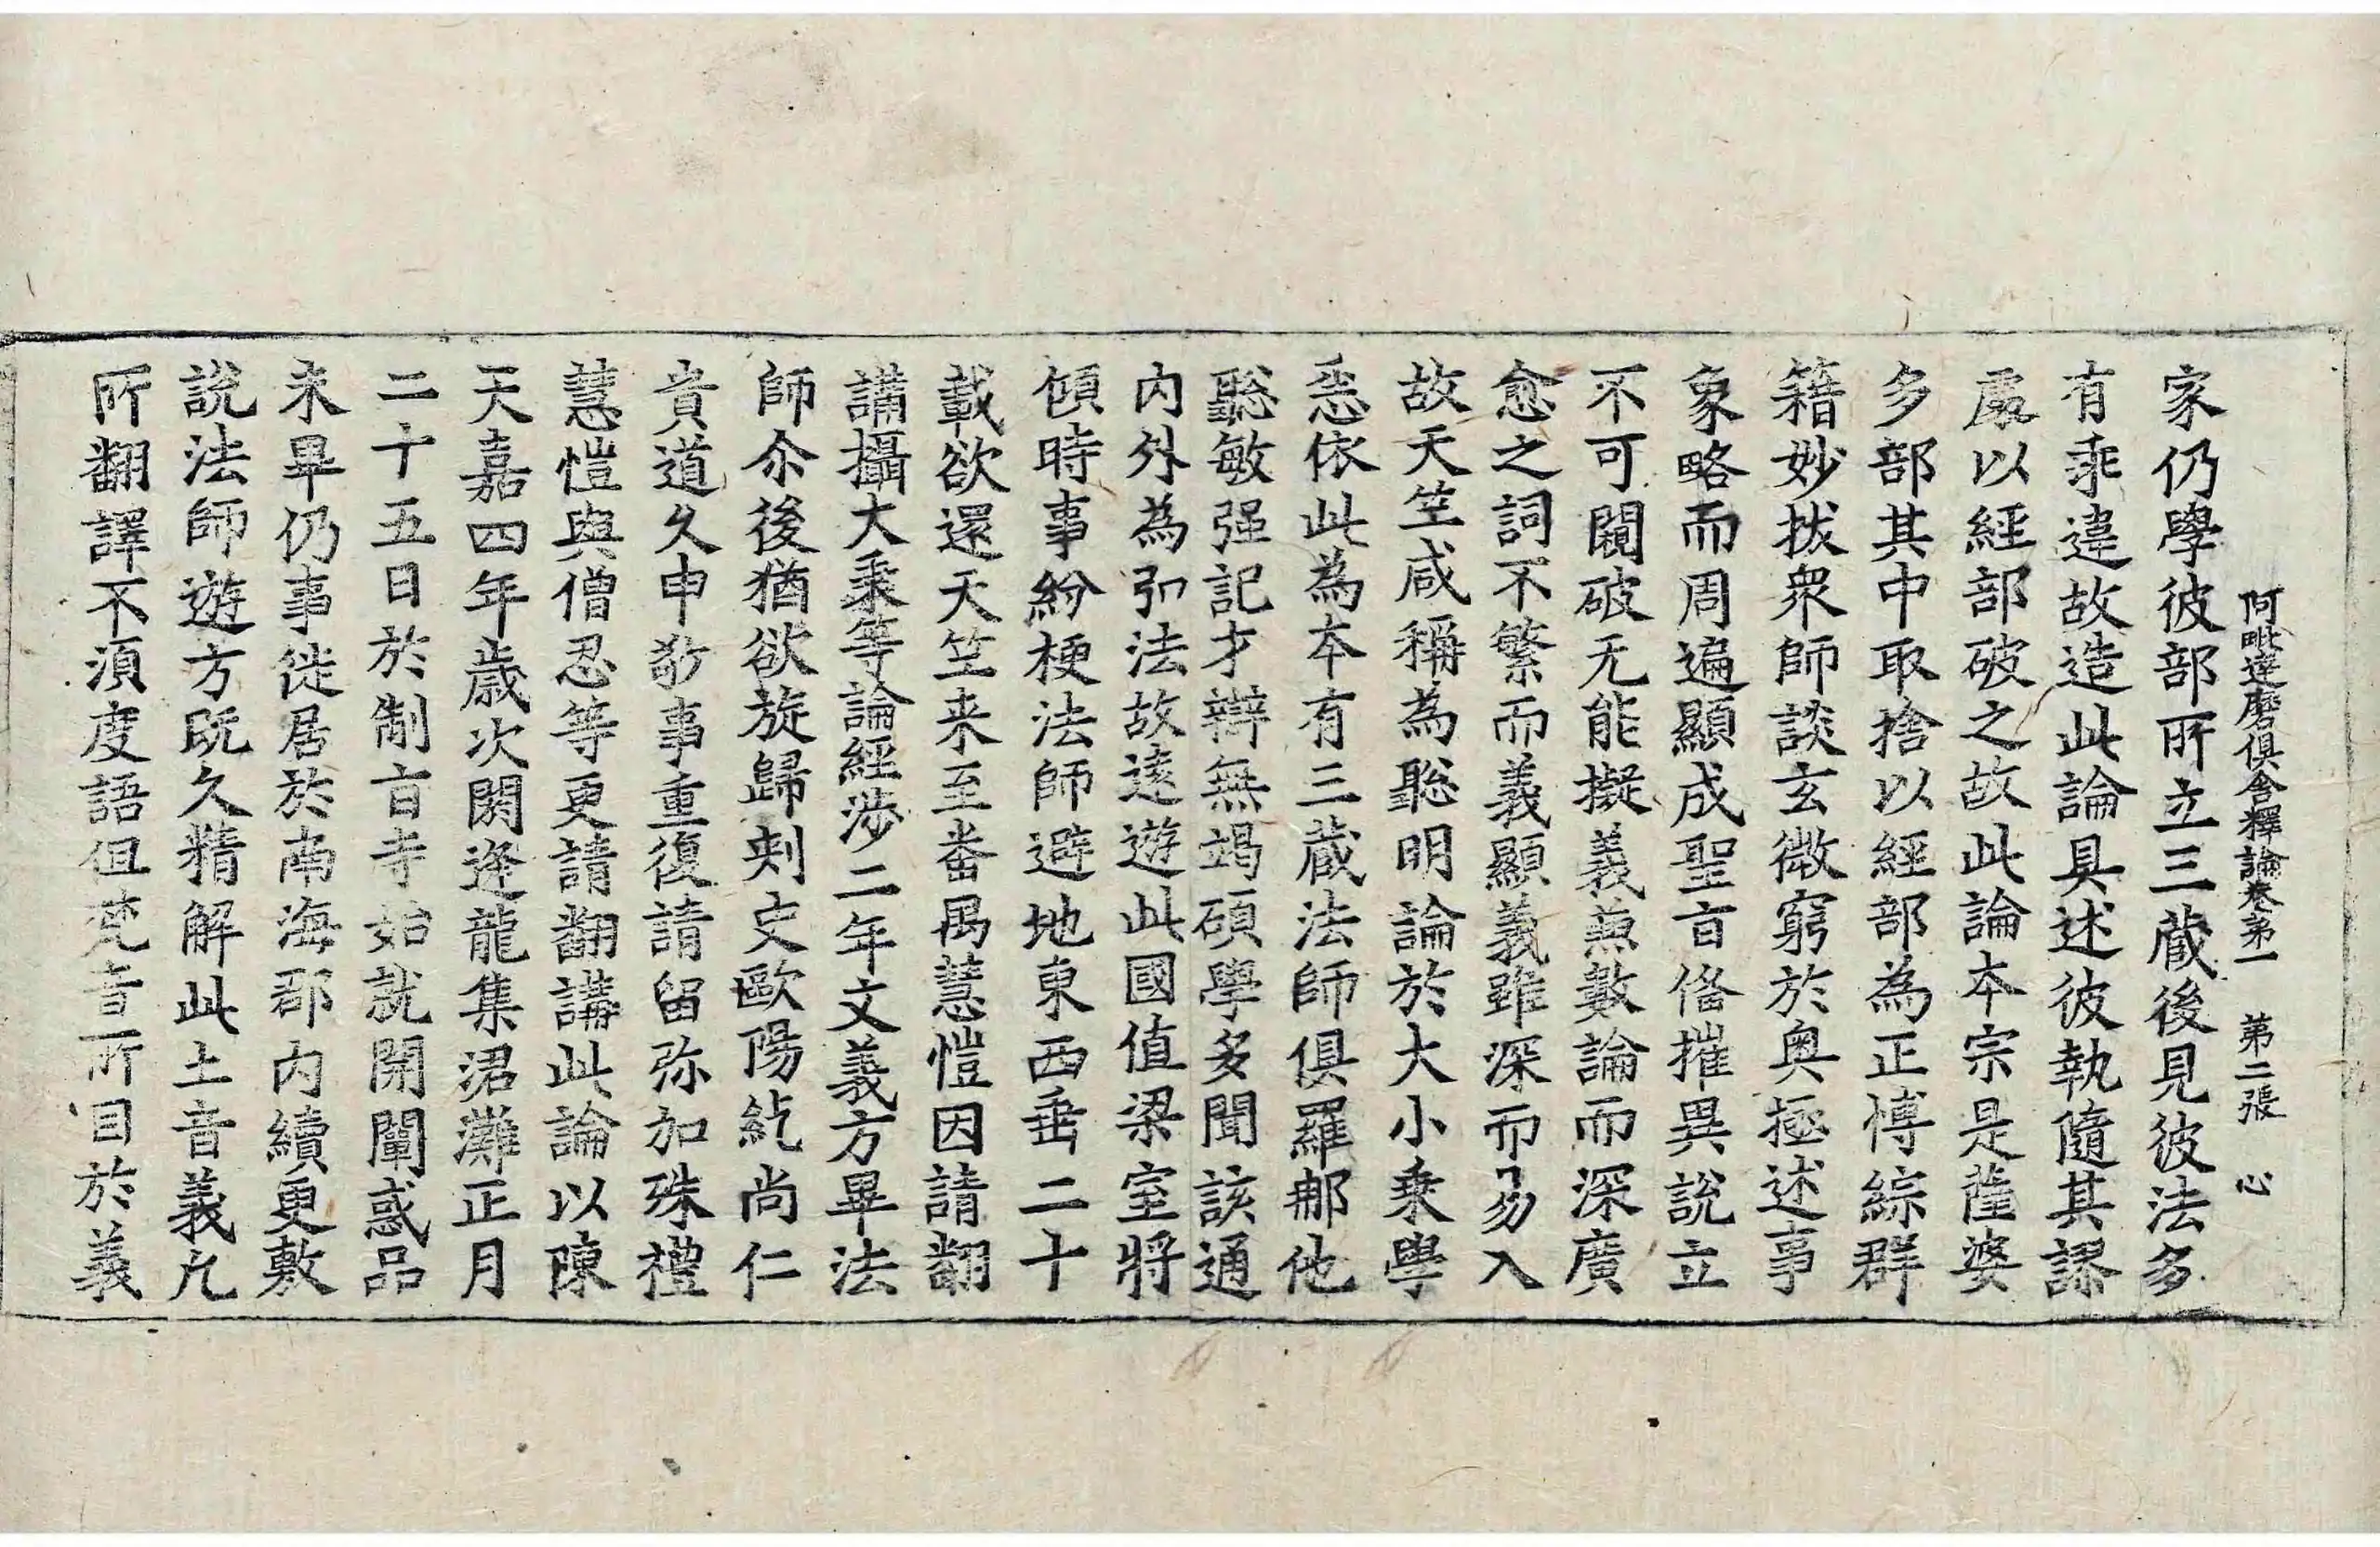 阿毗達磨俱舍釋論卷第一　第二張　心
家仍學彼部所立三藏後見彼法多
有乖違故造此論具述彼執隨其謬
處以經部破之故此論本宗是薩婆
多部其中取捨以經部為正博綜群
籍妙拔衆師談玄微窮於奧極述事
象略而周遍顯成聖㫖俻摧異說立
不可闚破无能擬義兼數論而深廣
愈之詞不繁而義顯義雖深而易入
故天竺咸稱為聡明論於大小乘學
悉依此為本有三藏法師俱羅那他
聡敏强記才辯無竭碩學多聞該通
內外為弘法故遠遊此國值梁室將
傾時事紛梗法師避地東西垂二十
載欲還天竺来至番禺慧愷因請翻
講攝大乘等論經涉二年文義方畢法
師尒後猶欲旋歸刺史歐陽紇尚仁
貴道久申敬事重復請留弥加殊禮
慧愷與僧忍等更請翻講此論以陳
天嘉四年歲次閼逢龍集涒灘正月
二十五日於制㫖寺始就開闡惑品
未畢仍事徙居於南海郡內續更敷
說法師遊方旣久精解此土音義凢
所翻譯不須度語但梵音所目於義